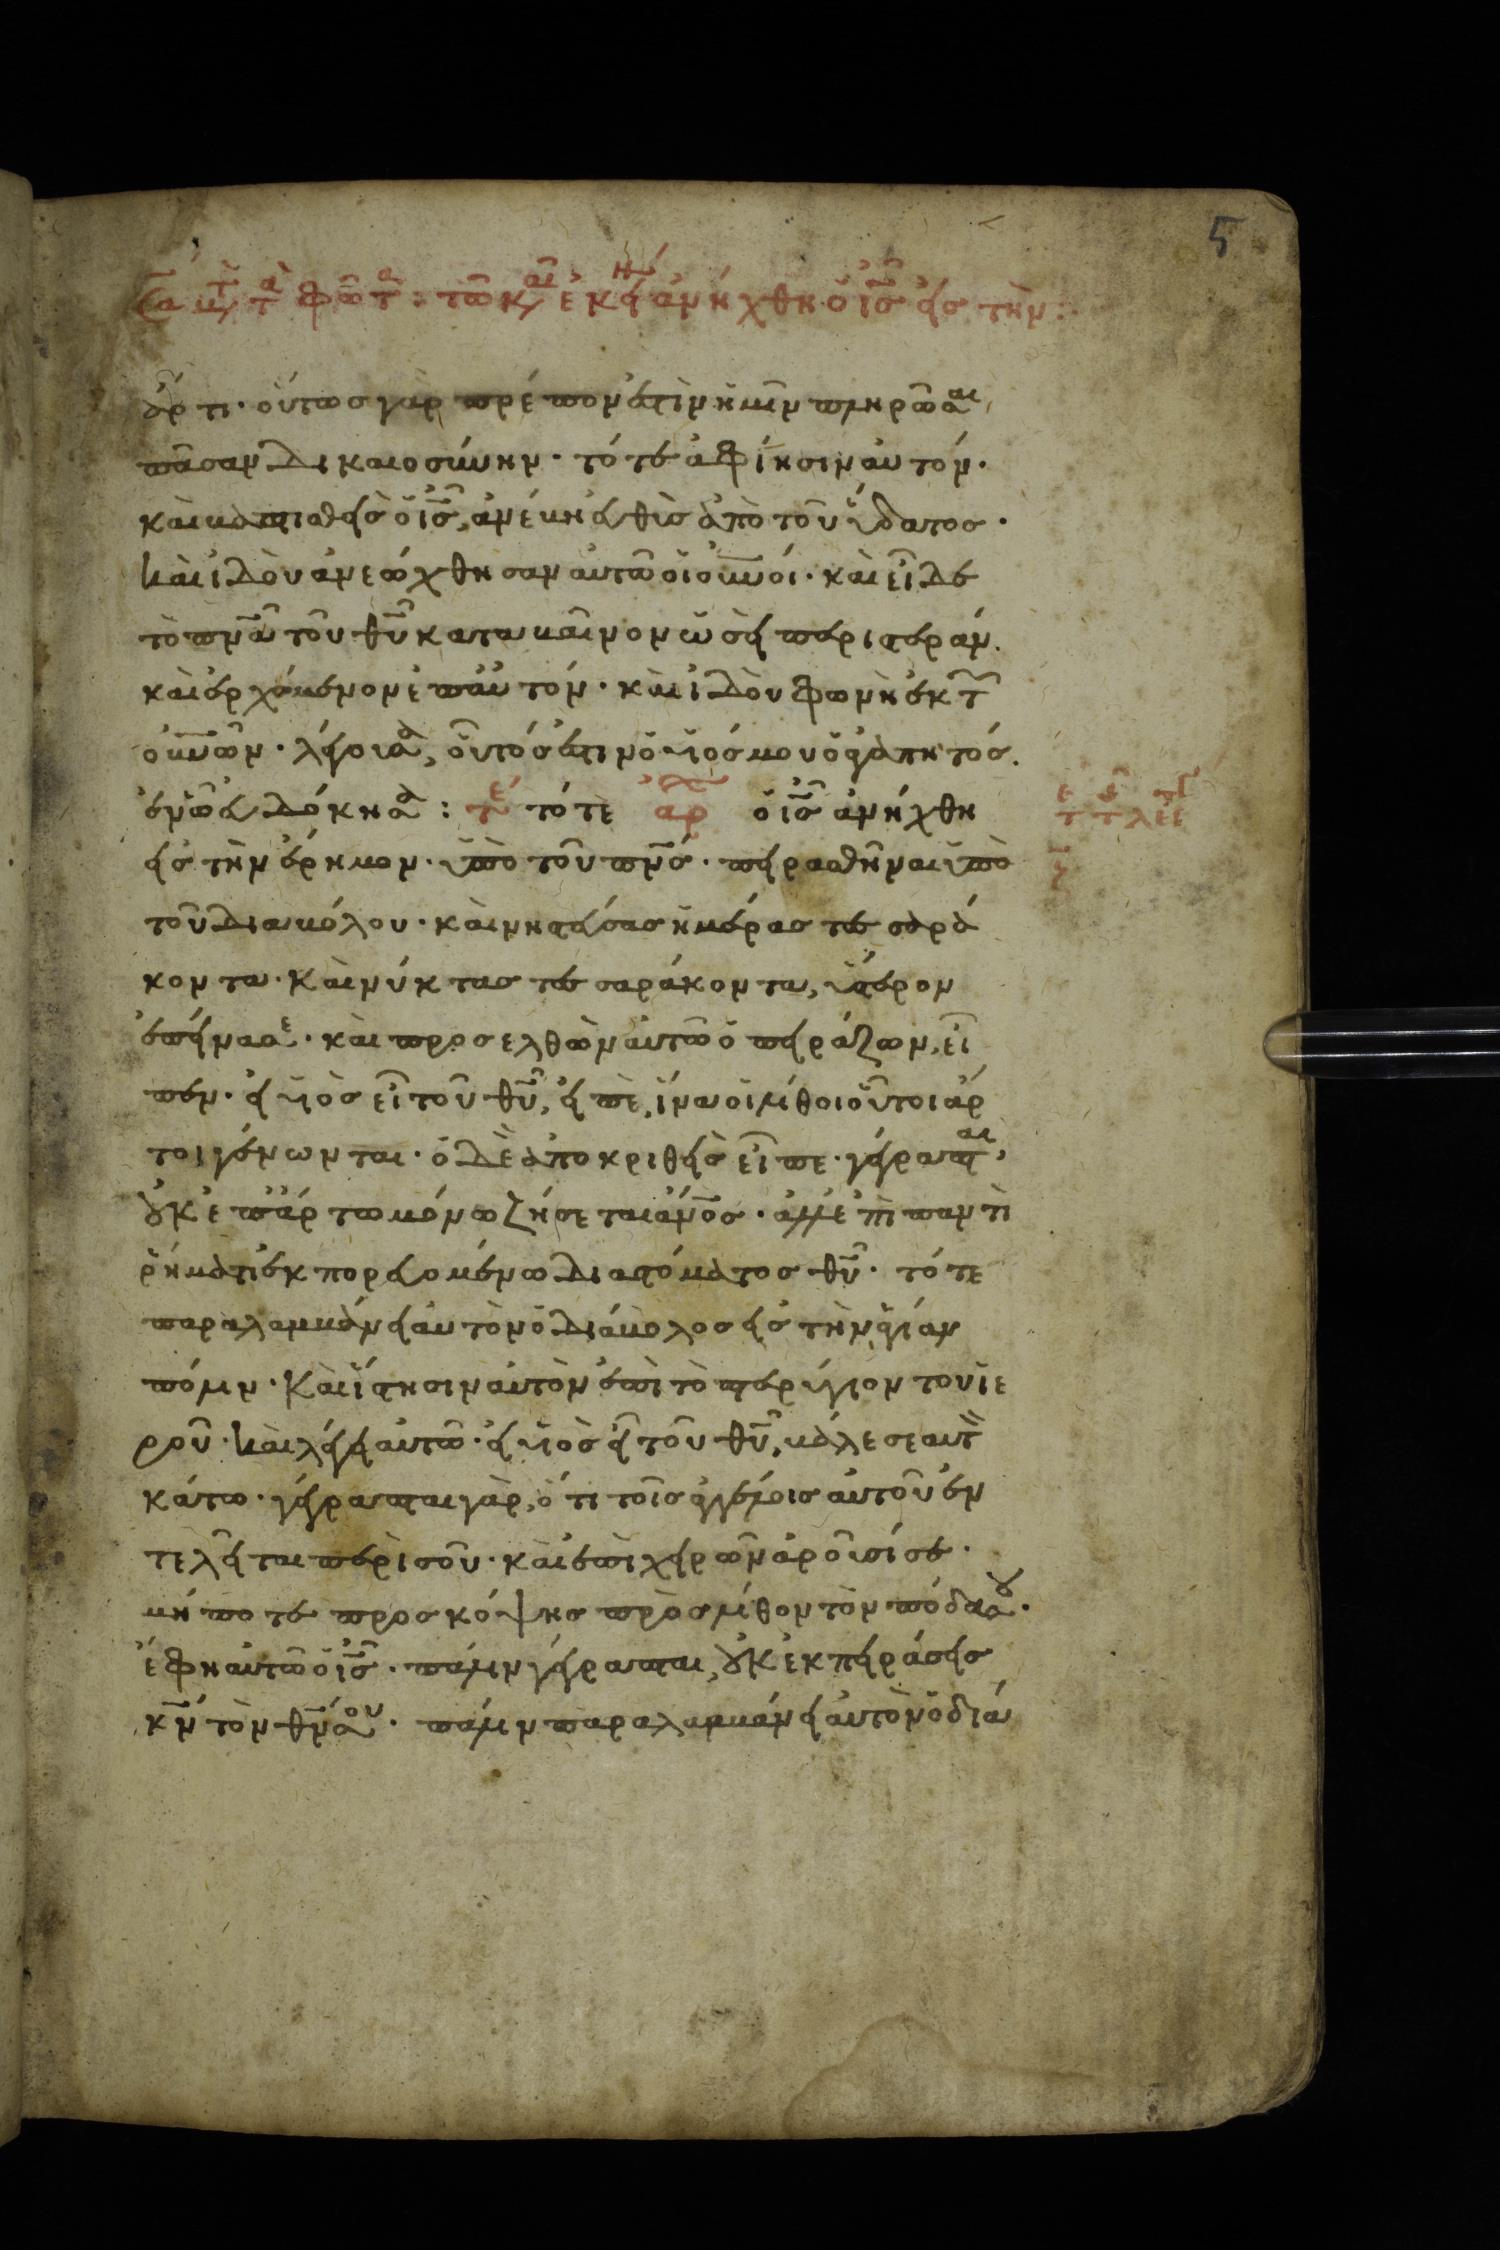 Σα μτ τ φωτ : τῶ κ αι ἐκει ἀνήχθη ὁ ἰς εἰς τὴν :
ἄρτι · οὕτως γὰρ πρέπον ἐστὶν ἡμῖν πληρῶσαι
πᾶσαν δικαιοσύνην · τότε ἀφίησιν αὐτόν ·
καὶ βαπτισθεὶς ὁ ἰς, ἀνέβη εὐθὺς ἀπὸ τοῦ ὕδατος ·
καὶ ἰδοὺ ἀνεώχθησαν αὐτῶ οἱ οὐνοί · καὶ εἶδε
τὸ πνα τοῦ θυ καταβαῖνον ὡσεὶ περιστεράν ·
καὶ ἐρχόμενον ἐπ αὐτόν · καὶ ἰδοὺ φωνὴ ἐκ τ
οὐνων · λέγουσα, οὗτός ἐστιν ὁ υἱός μου ὁ ἀγαπητός ·
ἐν ῶ εὐδόκησα : τε τότε αρ ὁ ἰς ἀνήχθη
εἰς τὴν ἔρημον · ὑπὸ τοῦ πνς · πειρασθῆναι ὑπὸ
τοῦ διαβόλου · καὶ νηστεύσας ἡμέρας τεσσαρά
κοντα · καὶ νύκτας τεσσαράκοντα, ὕστερον
ἐπείνασε · καὶ προσελθὼν αὐτῶ ὁ πειράζων, εἶ
πεν · εἰ υἱὸς εἶ τοῦ θυ, εἰπὲ, ἵνα οἱ λίθοι οὗτοι ἄρ
τοι γένωνται · ὁ δὲ ἀποκριθεὶς εἶπε · γέγραπται,
οὐκ ἐπ ἄρτω μόνω ζήσεται ἄνος · ἀλλ ἐπὶ παντὶ
ῥήματι ἐκπορευομένω διὰ στόματος θυ · τότε
παραλαμβάνει αὐτὸν ὁ διάβολος εἰς τὴν ἁγίαν
πόλιν · καὶ ἵστησιν αὐτὸν ἐπὶ τὸ πτερύγιον τοῦ ἱε
ροῦ · καὶ λέγει αὐτῶ · εἰ υἱὸς εἶ τοῦ θυ, βάλε σεαυτ
κάτω · γέγραπται γὰρ, ὅτι τοῖς ἀγγέλοις αὐτοῦ ἐν
τελεῖται περὶ σοῦ · καὶ ἐπὶ χειρῶν ἀροῦσί σε ·
μήποτε προσκόψης πρὸς λίθον τὸν πόδα σου ·
ἔφη αὐτῶ ὁ ἰς · πάλιν γέγραπται, οὐκ ἐκπειράσεις
κν τὸν θν σου · πάλιν παραλαμβάνει αὐτὸν ὁ διά
5